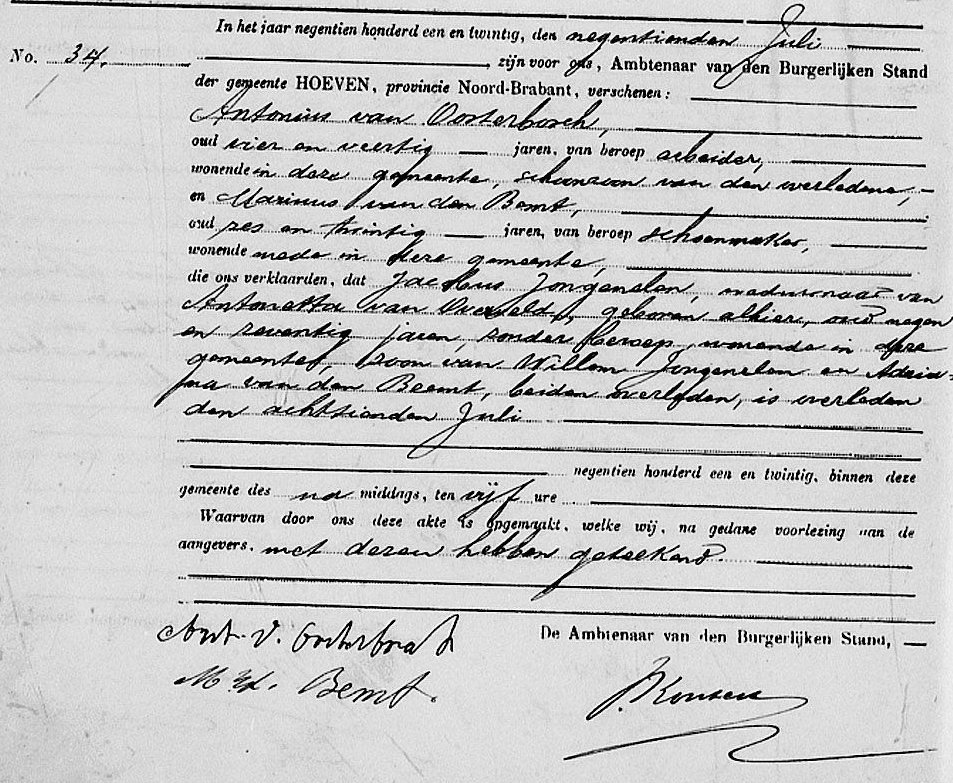 In het jaar negentien honderd een en twintig, den negentienden Juli
No. 34. zijn voor ons, Ambtenaar van den Burgerlijken Stand
der gemeente HOEVEN, provincie Noord-Brabant, verschenen:
Antonius van Oosterbosch,
oud vier en veertig jaren, van beroep arbeider,
wonende in deze gemeente, schoonzoon van den overledene,
en Marinus van den Bemt,
oud zes en twintig jaren, van beroep schoenmaker,
wonende mede in deze gemeente,
die ons verklaarden, dat Jacobus Jongenelen, weduwnaar van
Antonetta van Overveld, geboren alhier, oud negen
en zeventig jaren zonder beroep, wonende in deze
gemeente, zoon van Willem Jongenelen en Adria-
na van den Beemt, beiden overleden, is overleden
den achttienden Juli
negentien honderd een en twintig, binnen deze
gemeente des na middags, ten vijf ure
Waarvan door ons deze akte is opgemaakt, welke wij, na gedane voorlezing aan de
aangevers, met dezen hebben geteekend.
De Ambtenaar van den Burgerlijken Stand,
Ant. v. Oosterbosch
M vd. Bemt.